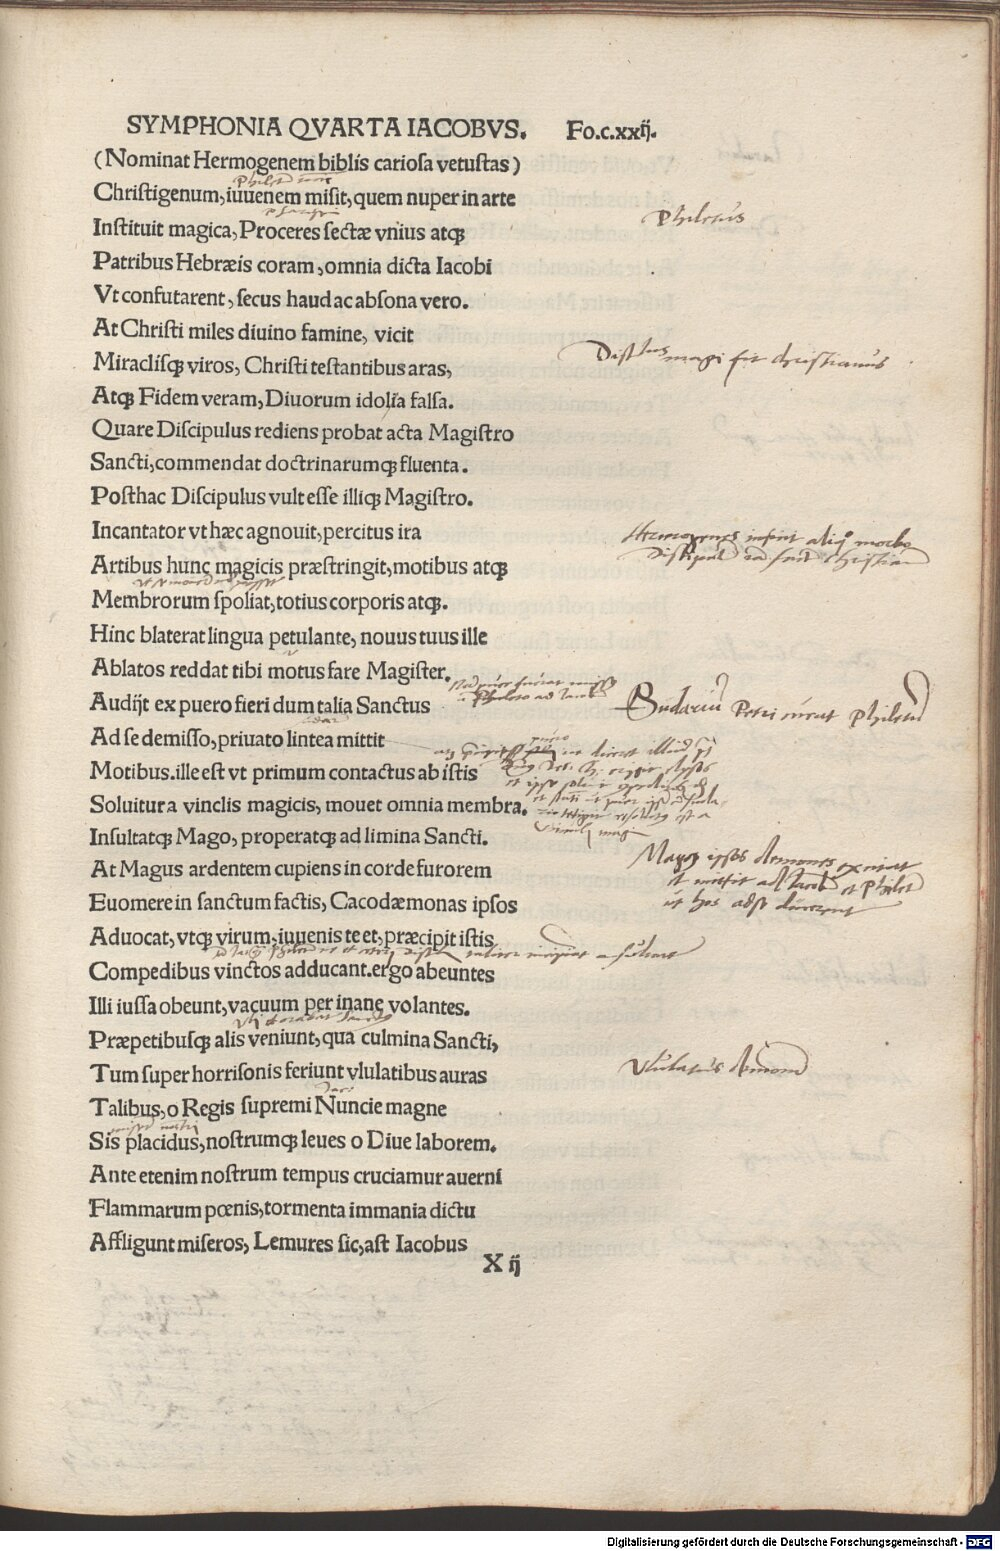 SYMPHONIA QVARTA IACOBVS. Fo.c.xxij.
(Nominat Hermogenem biblis cariosa vetustas)
Christigenum, iuuenem misit, quem nuper in arte
Philetus
Instituit magica, Proceres sectæ vnius atqꝫ
Patribus Hebræis coram, omnia dicta Iacobi
Vt confutarent, secus haud ac absona vero.
At Christi miles diuino famine, vicit
magi fit christianus
Miraclisqꝫ viros, Christi testantibus aras,
Atqꝫ Fidem veram, Diuorum idolia falsa.
Quare Discipulus rediens probat acta Magistro
Sancti, commendat doctrinarumqꝫ fluenta.
Posthac Discipulus vult esse illiqꝫ Magistro.
Incantator vt hæc agnouit, percitus ira
Hermogenes morbo
Artibus hunc magicis præstringit, motibus atqꝫ
Membrorum spoliat, totius corporis atqꝫ.
Hinc blaterat lingua petulante, nouus tuus ille
Ablatos reddat tibi motus fare Magister.
Audijt ex puero fieri dum talia Sanctus
Sudariū Petri Philetū
Ad se demisso, priuato lintea mittit
Motibus. ille est vt primum contactus ab istis
Soluitur a vinclis magicis, mouet omnia membra.
Insultatqꝫ Mago, properatqꝫ ad limina Sancti.
At Magus ardentem cupiens in corde furorem
Magus ipsos demones
et mittit ad et Philet
ut hos
Euomere in sanctum factis, Cacodæmonas ipsos
Aduocat, vtqꝫ virum, iuuenis te et, præcipit istis
Compedibus vinctos adducant. ergo abeuntes
Illi iussa obeunt, vacuum per inane volantes.
Præpetibusqꝫ alis veniunt, qua culmina Sancti,
Vlulatus demonū
Tum super horrisonis feriunt vlulatibus auras
Talibus, o Regis supremi Nuncie magne
Sis placidus, nostrumqꝫ leues o Diue laborem.
Ante etenim nostrum tempus cruciamur auerni
Flammarum pœnis, tormenta immania dictu
Affligunt miseros, Lemures sic, ast Iacobus
X ij
Digitalisierung gefördert durch die Deutsche Forschungsgemeinschaft - DFG